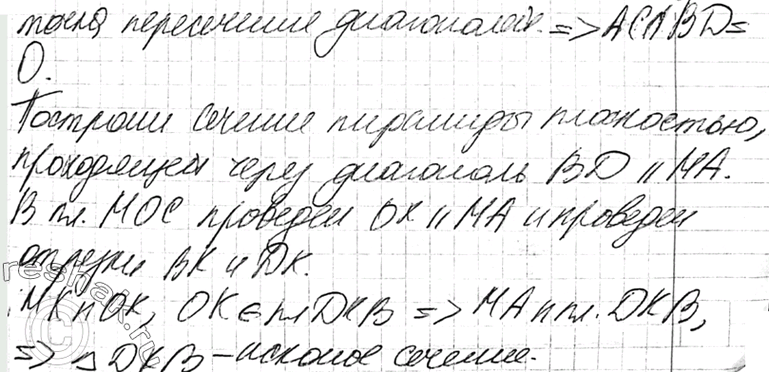 точка пересечения диагоналей. => AC∩BD=
O.
Построим сечение пирамиды плоскостью,
проходящей через диагональ BD || MA.
В пл. MOC проведем OK || MA и проведем
отрезки BK и DK.
MK || OK, OK ∈ пл DKB => MA || пл. DKB,
=> △ DKB – искомое сечение.
reshak.ru